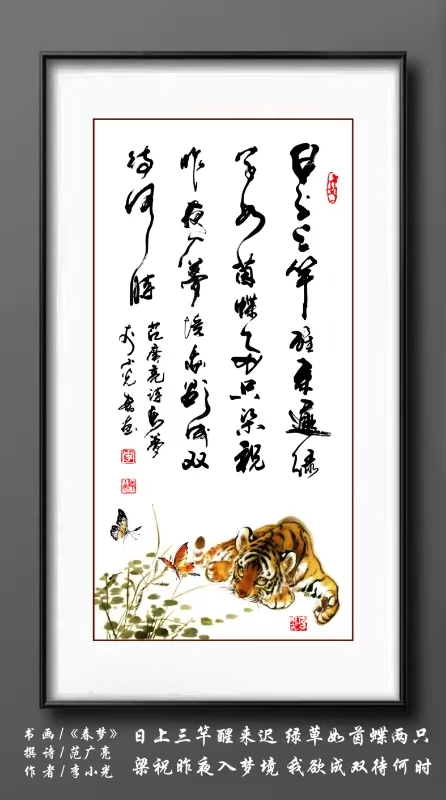 日上三竿醒来遲绿
草如茵蝶两只梁祝
昨夜入夢境我欲成双
待何时
范廣亮诗春夢
李小光书画
书 画 /《春梦》
撰 诗 / 范广亮
作 者 / 李小光
日上三竿醒来迟 绿草如茵蝶两只
梁祝昨夜入梦境 我欲成双待何时